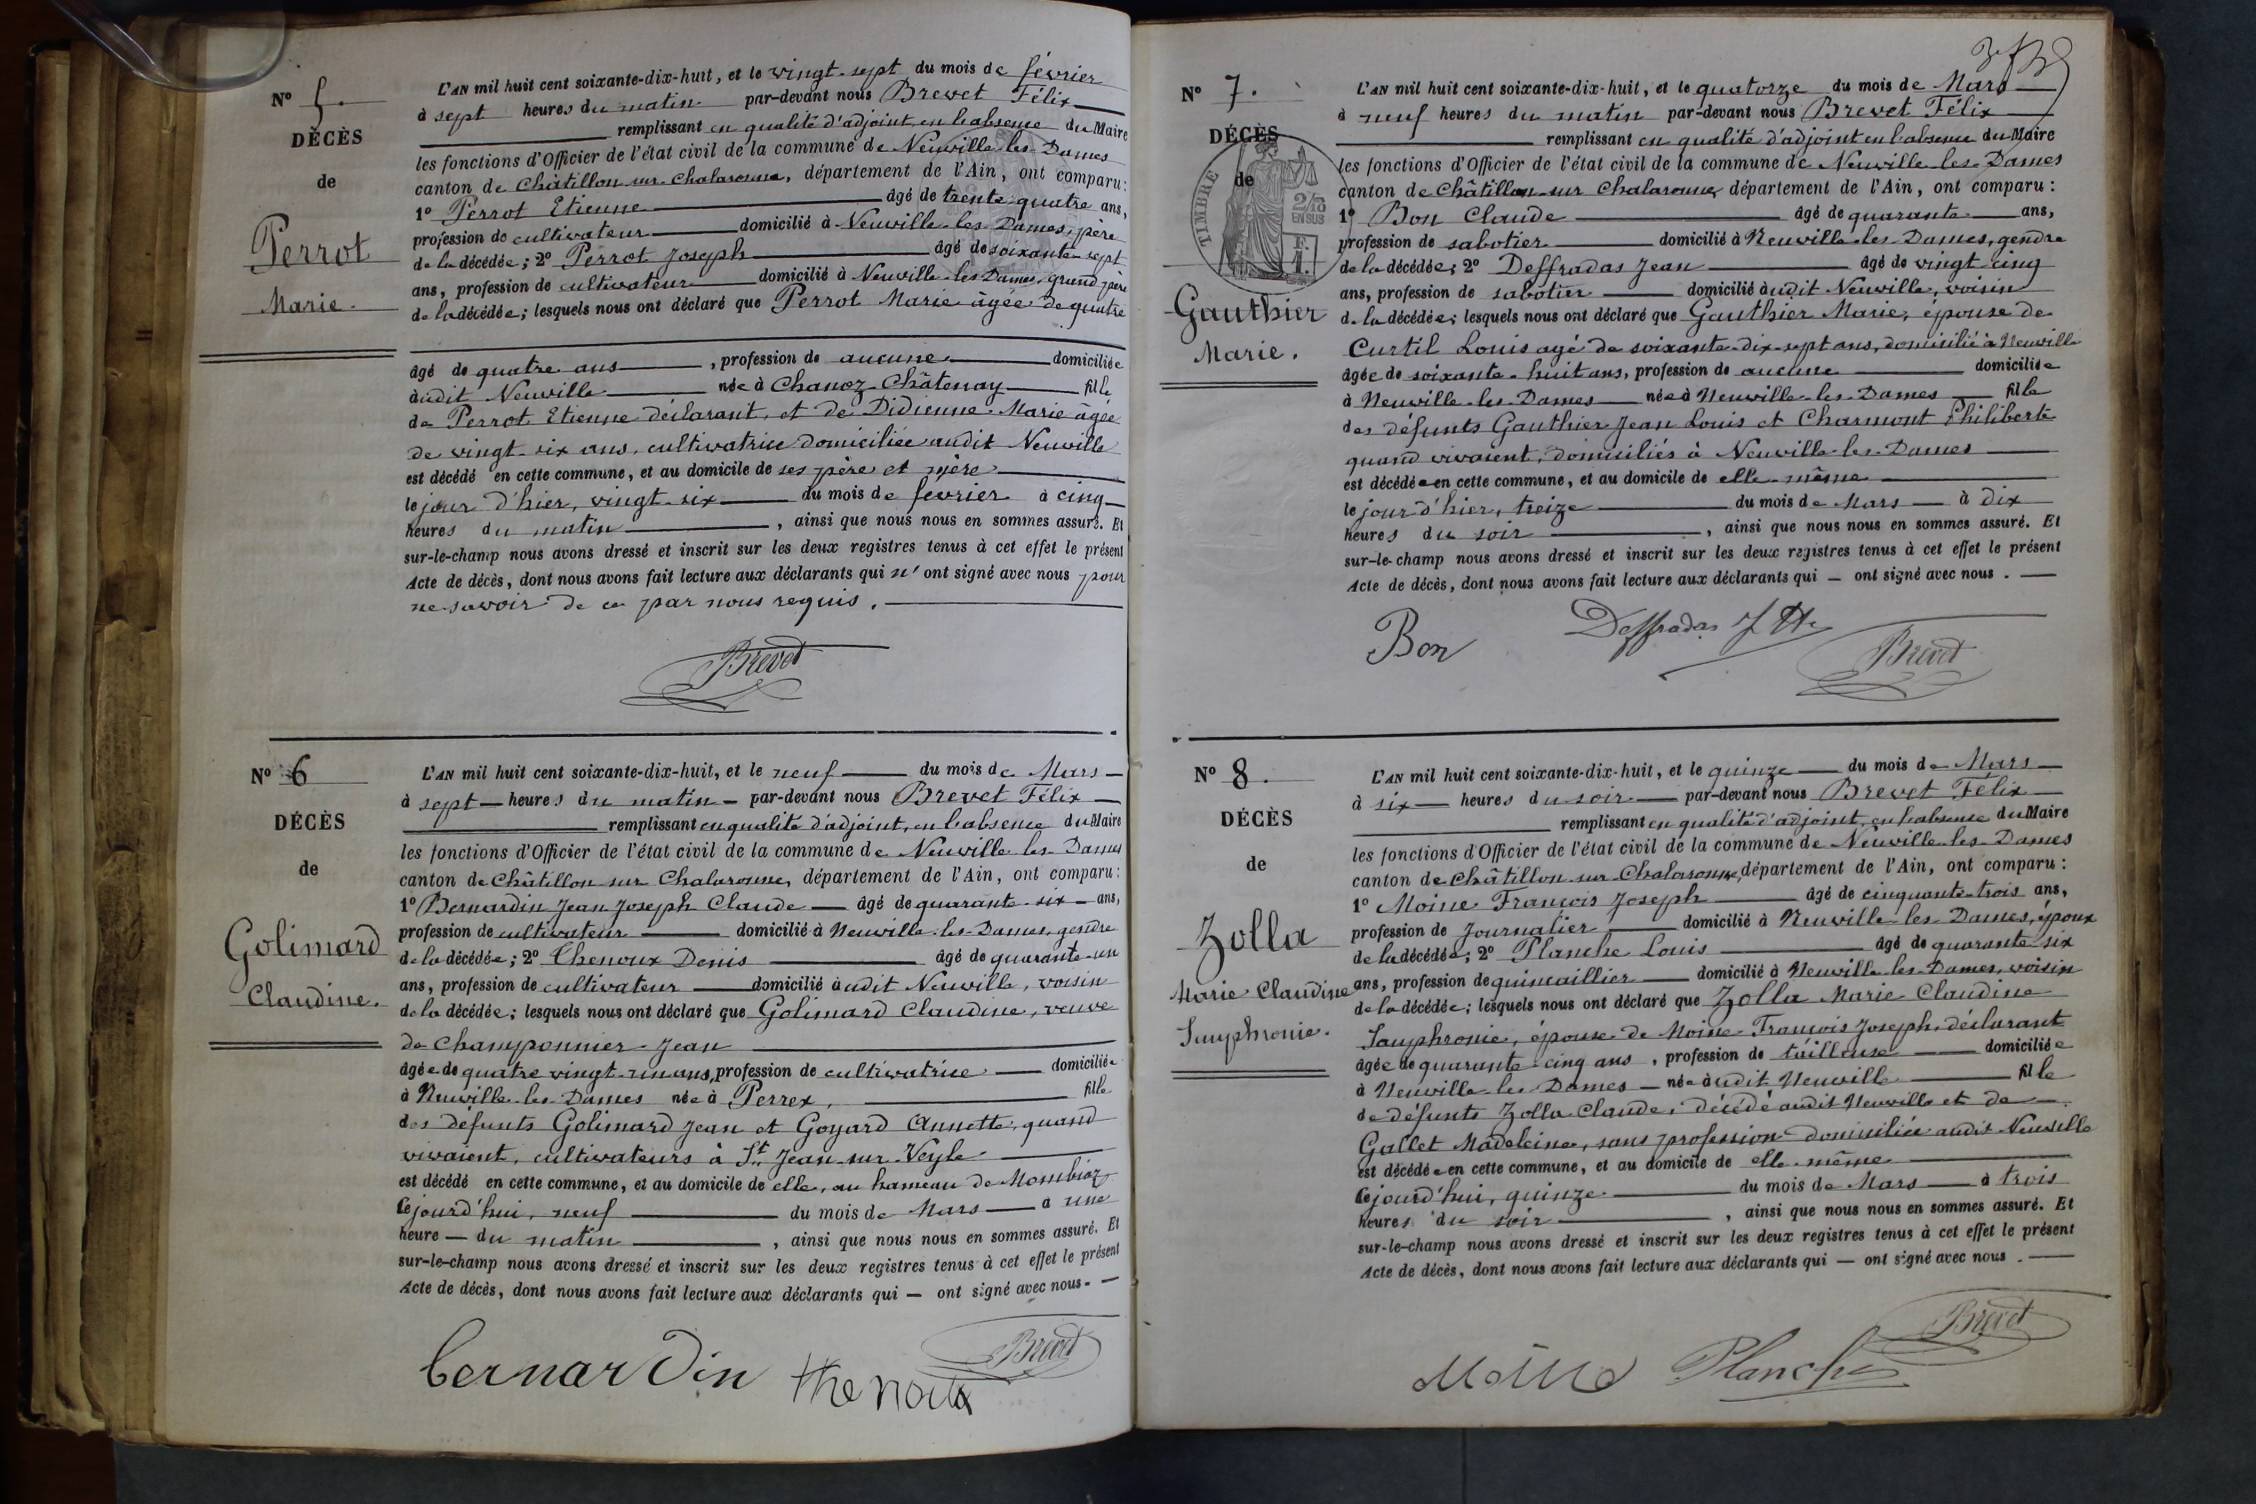 N° 5.
DÉCÈS
de
Perrot
Marie.
L'AN mil huit cent soixante-dix-huit, et le vingt-sept du mois de février
à sept heures du matin par-devant nous Brevet Félix
remplissant en qualité d'adjoint, en l'absence du Maire
les fonctions d'Officier de l'état civil de la commune de Neuville-les-Dames
canton de Châtillon-sur-Chalaronne, département de l'Ain, ont comparu:
1° Perrot Etienne âgé de trente-quatre ans,
profession de cultivateur domicilié à Neuville-les-Dames, père
de la décédée; 2° Perrot Joseph âgé de soixante-sept
ans, profession de cultivateur domicilié à Neuville-les-Dames, grand père
de la décédée; lesquels nous ont déclaré que Perrot Marie âgée de quatre
âgé de quatre ans, profession de aucune domiciliée
audit Neuville née à Chanoz-Châtenay fille
de Perrot Etienne déclarant, et de Didienne Marie âgée
de vingt-six ans, cultivatrice domiciliée audit Neuville
est décédé en cette commune, et au domicile de ses père et mère
le jour d'hier, vingt-six du mois de février à cinq
heures du matin, ainsi que nous nous en sommes assuré. Et
sur-le-champ nous avons dressé et inscrit sur les deux registres tenus à cet effet le présent
Acte de décès, dont nous avons fait lecture aux déclarants qui n'ont signé avec nous pour
ne savoir de ce par nous requis.
Brevet
N° 6
DÉCÈS
de
Golimard
Claudine.
L'AN mil huit cent soixante-dix-huit, et le neuf du mois de Mars
à sept heures du matin par-devant nous Brevet Félix
remplissant en qualité d'adjoint, en l'absence du Maire
les fonctions d'Officier de l'état civil de la commune de Neuville-les-Dames
canton de Châtillon-sur-Chalaronne, département de l'Ain, ont comparu:
1° Bernardin Jean Joseph Claude âgé de quarante-six ans,
profession de cultivateur domicilié à Neuville-les-Dames, gendre
de la décédée; 2° Chenoux Denis âgé de quarante-un
ans, profession de cultivateur domicilié audit Neuville, voisin
de la décédée; lesquels nous ont déclaré que Golimard Claudine, veuve
de Champonnier Jean
âgée de quatre vingt-un ans, profession de cultivatrice domiciliée
à Neuville-les-Dames née à Perrex, fille
des défunts Golimard Jean et Goyard Annette, quand
vivaient, cultivateurs à St Jean-sur-Veyle
est décédé en cette commune, et au domicile de elle, au hameau de Mombioz
Cejourd'hui, neuf du mois de Mars à une
heure du matin, ainsi que nous nous en sommes assuré. Et
sur-le-champ nous avons dressé et inscrit sur les deux registres tenus à cet effet le présent
Acte de décès, dont nous avons fait lecture aux déclarants qui — ont signé avec nous.
bernardin thenoux Brevet
N° 7.
DÉCÈS
de
TIMBRE
2/10
EN SUS
F.
1.
Gauthier
Marie.
L'AN mil huit cent soixante-dix-huit, et le quatorze du mois de Mars
à neuf heures du matin par-devant nous Brevet Félix
remplissant en qualité d'adjoint en l'absence du Maire
les fonctions d'Officier de l'état civil de la commune de Neuville-les-Dames
canton de Châtillon-sur Chalaronne, département de l'Ain, ont comparu:
1° Bon Claude âgé de quarante ans,
profession de sabotier domicilié à Neuville-les-Dames, gendre
de la décédée; 2° Deffradas Jean âgé de vingt-cinq
ans, profession de sabotier domicilié audit Neuville, voisin
de la décédée; lesquels nous ont déclaré que Gauthier Marie, épouse de
Curtil Louis agé de soixante-dix-sept ans, domicilié à Neuville
âgée de soixante-huit ans, profession de aucune domiciliée
à Neuville-les-Dames née à Neuville-les-Dames fille
des défunts Gauthier Jean Louis et Charmont Philiberte
quand vivaient, domiciliés à Neuville-les-Dames
est décédée en cette commune, et au domicile de elle-même
le jour d'hier, treize du mois de Mars à dix
heures du soir, ainsi que nous nous en sommes assuré. Et
sur-le-champ nous avons dressé et inscrit sur les deux registres tenus à cet effet le présent
Acte de décès, dont nous avons fait lecture aux déclarants qui — ont signé avec nous.
Bon Deffradas Brevet
N° 8.
DÉCÈS
de
Zolla
Marie Claudine
Sauphronie.
L'AN mil huit cent soixante-dix-huit, et le quinze du mois de Mars
à six heures du soir par-devant nous Brevet Félix
remplissant en qualité d'adjoint, en l'absence du Maire
les fonctions d'Officier de l'état civil de la commune de Neuville-les-Dames
canton de Châtillon-sur-Chalaronne, département de l'Ain, ont comparu:
1° Moine François Joseph âgé de cinquante-trois ans,
profession de Journalier domicilié à Neuville-les-Dames, époux
de la décédée; 2° Planche Louis âgé de quarante-six
ans, profession de quincaillier domicilié à Neuville-les-Dames, voisin
de la décédée; lesquels nous ont déclaré que Zolla Marie Claudine
Sauphronie, épouse de Moine François Joseph, déclarant
âgée de quarante-cinq ans, profession de tailleuse domiciliée
à Neuville-les-Dames née audit Neuville fille
de défunts Zolla Claude, décédé audit Neuville et de
Gallet Madeleine, sans profession domiciliée audit Neuville
est décédée en cette commune, et au domicile de elle-même
Cejourd'hui, quinze du mois de Mars à trois
heures du soir, ainsi que nous nous en sommes assuré. Et
sur-le-champ nous avons dressé et inscrit sur les deux registres tenus à cet effet le présent
Acte de décès, dont nous avons fait lecture aux déclarants qui — ont signé avec nous.
Moine Planche Brevet